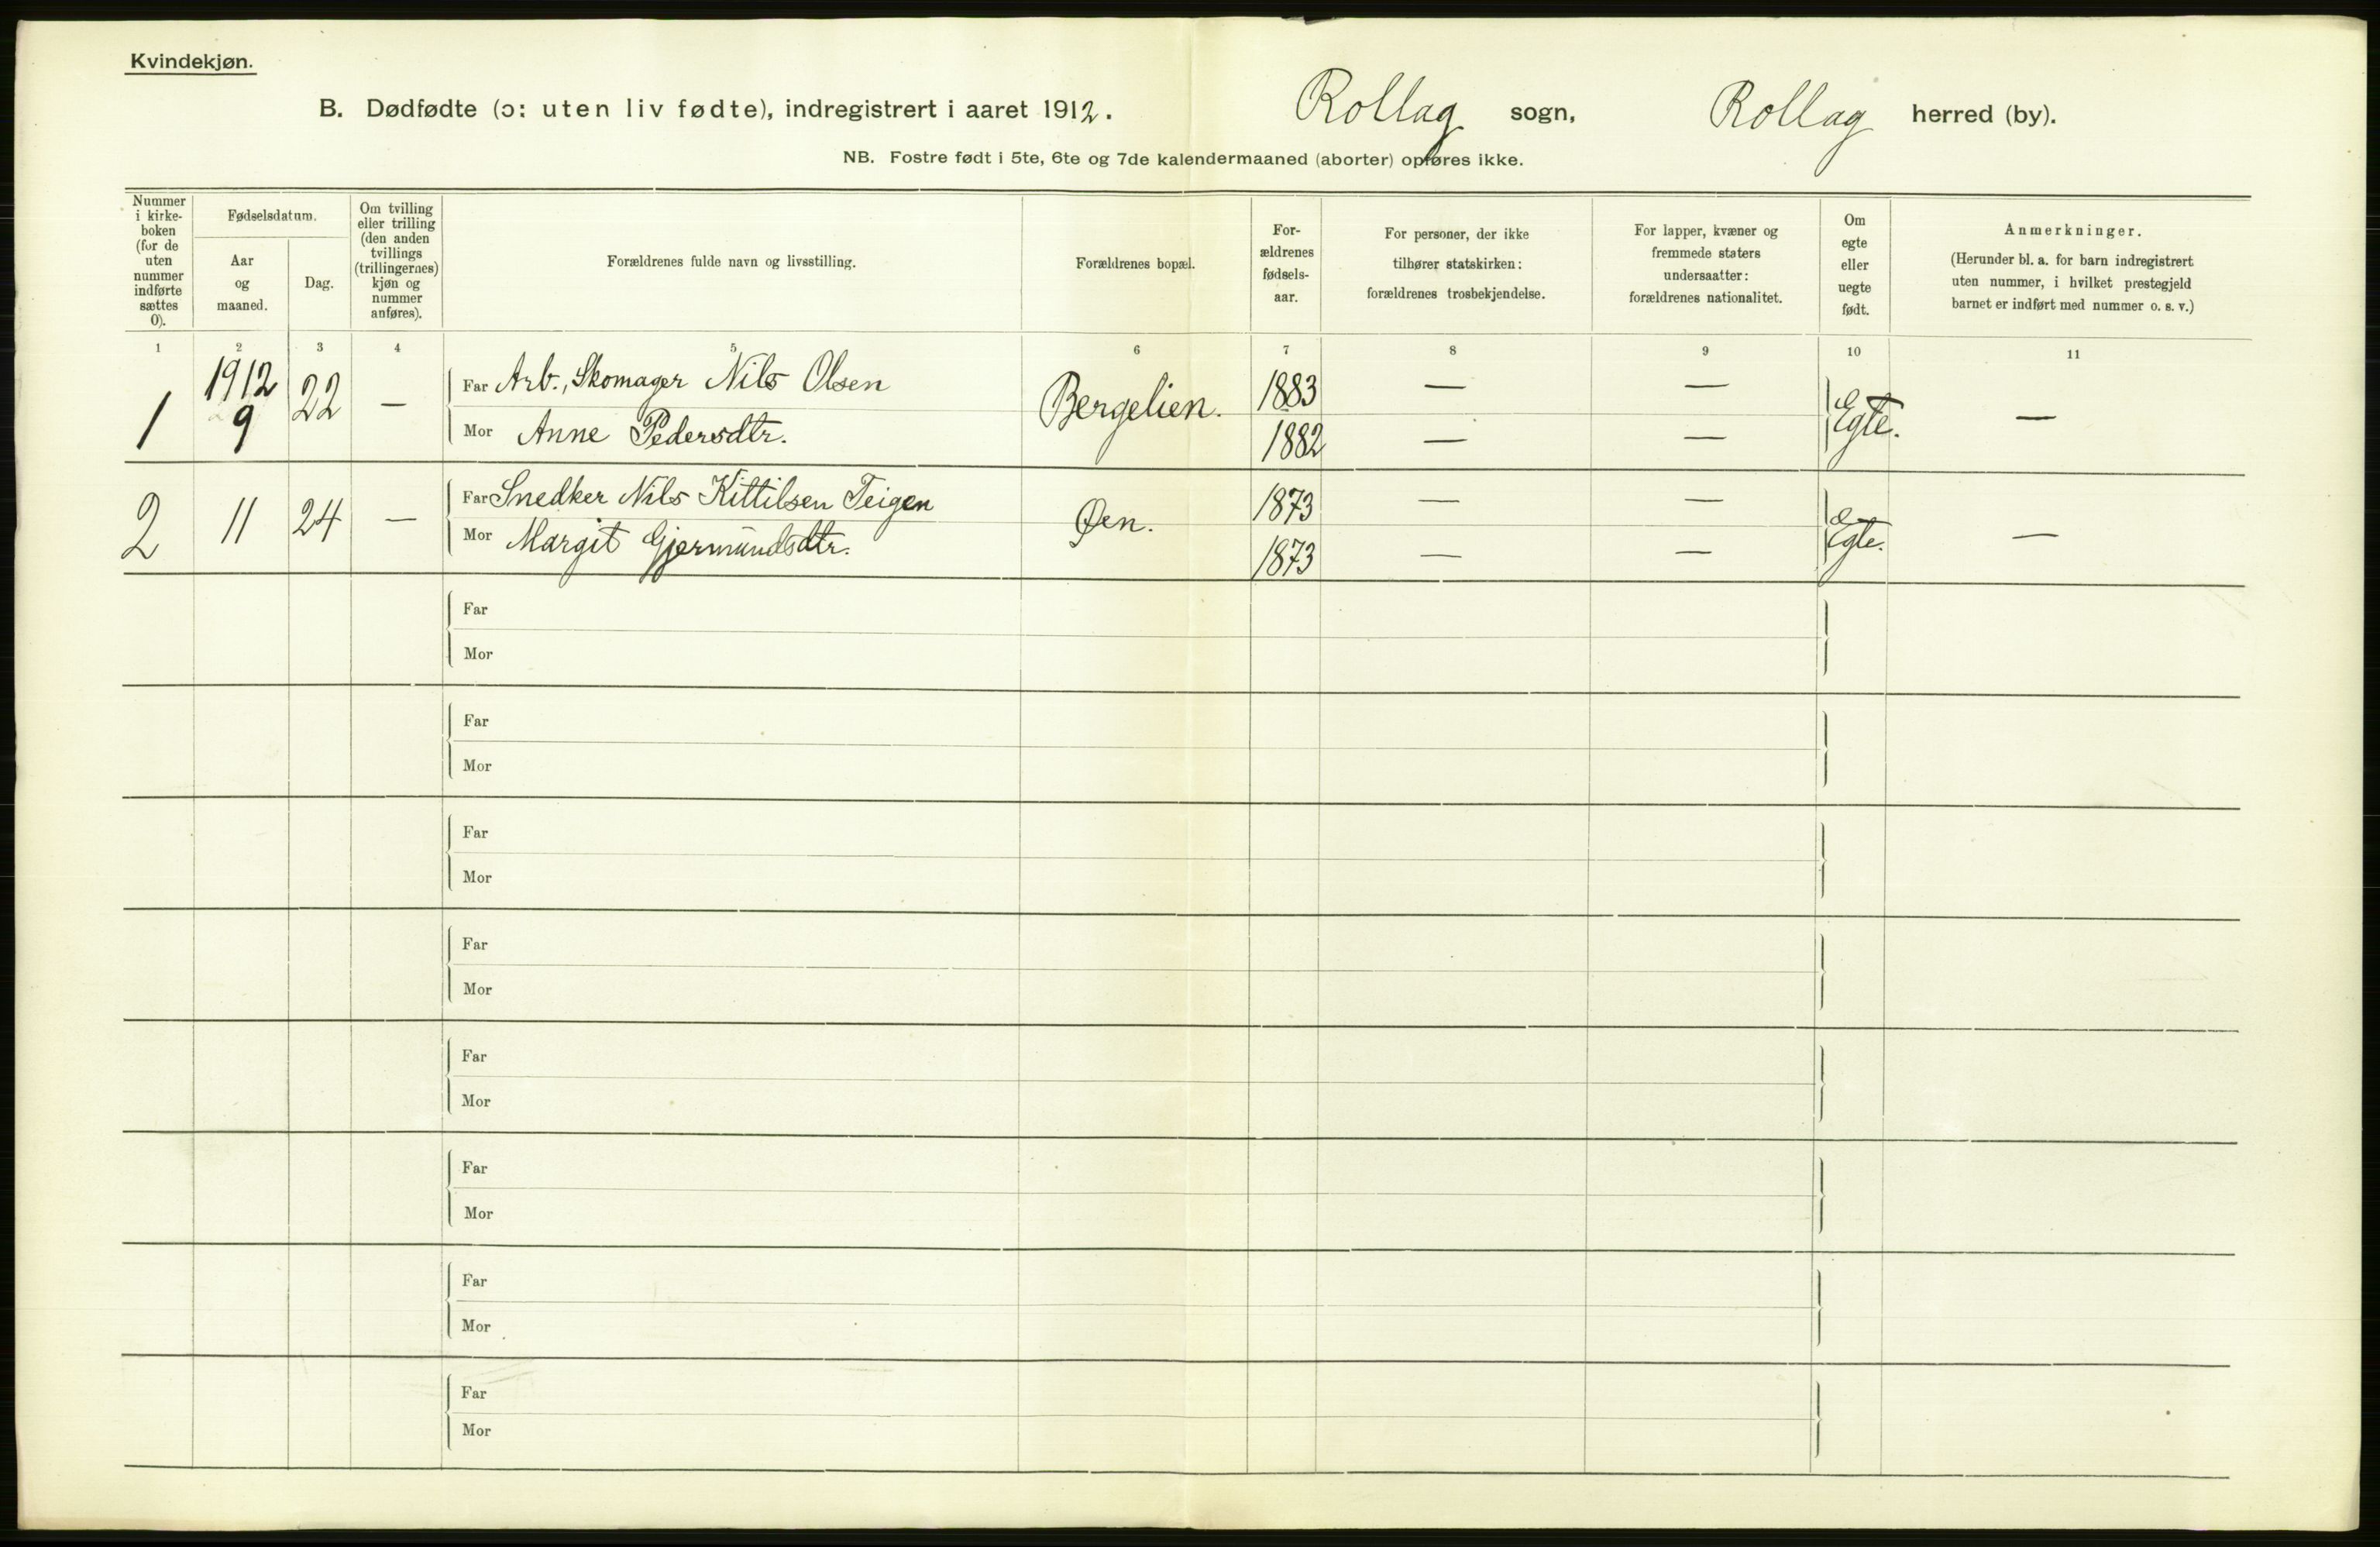 Kvindekjøn.
B. Dødfødte (ɔ: uten liv fødte), indregistrert i aaret 1912. Rollag sogn, Rollag herred (by).
NB. Fostre født i 5te, 6te og 7de kalendermaaned (aborter) opføres ikke.
Nummer
i kirke-
boken
(for de
uten
nummer
indførte
sættes
0).
Fødselsdatum.
Aar
og
maaned.
Dag.
Om tvilling
eller trilling
(den anden
tvillings
(trillingernes)
kjøn og
nummer
anføres).
Forældrenes fulde navn og livsstilling.
Forældrenes bopæl.
For-
ældrenes
fødsels-
aar.
For personer, der ikke
tilhører statskirken:
forældrenes trosbekjendelse.
For lapper, kvæner og
fremmede staters
undersaatter:
forældrenes nationalitet.
Om
egte
eller
uegte
født.
Anmerkninger.
(Herunder bl. a. for barn indregistrert
uten nummer, i hvilket prestegjeld
barnet er indført med nummer o. s. v.)
1 2 3 4 5 6 7 8 9 10 11
1912
1 9 22 — Far Arb., Skomager Nils Olsen Bergelien. 1883 — — e Egte. —
Mor Anne Pedersdtr. 1882 — —
2 11 24 — Far Snedker Nils Kittilsen Teigen Øen. 1873 — — e Egte. —
Mor Margit Gjermundsdtr. 1873 — —
Far
Mor
Far
Mor
Far
Mor
Far
Mor
Far
Mor
Far
Mor
Far
Mor
Far
Mor